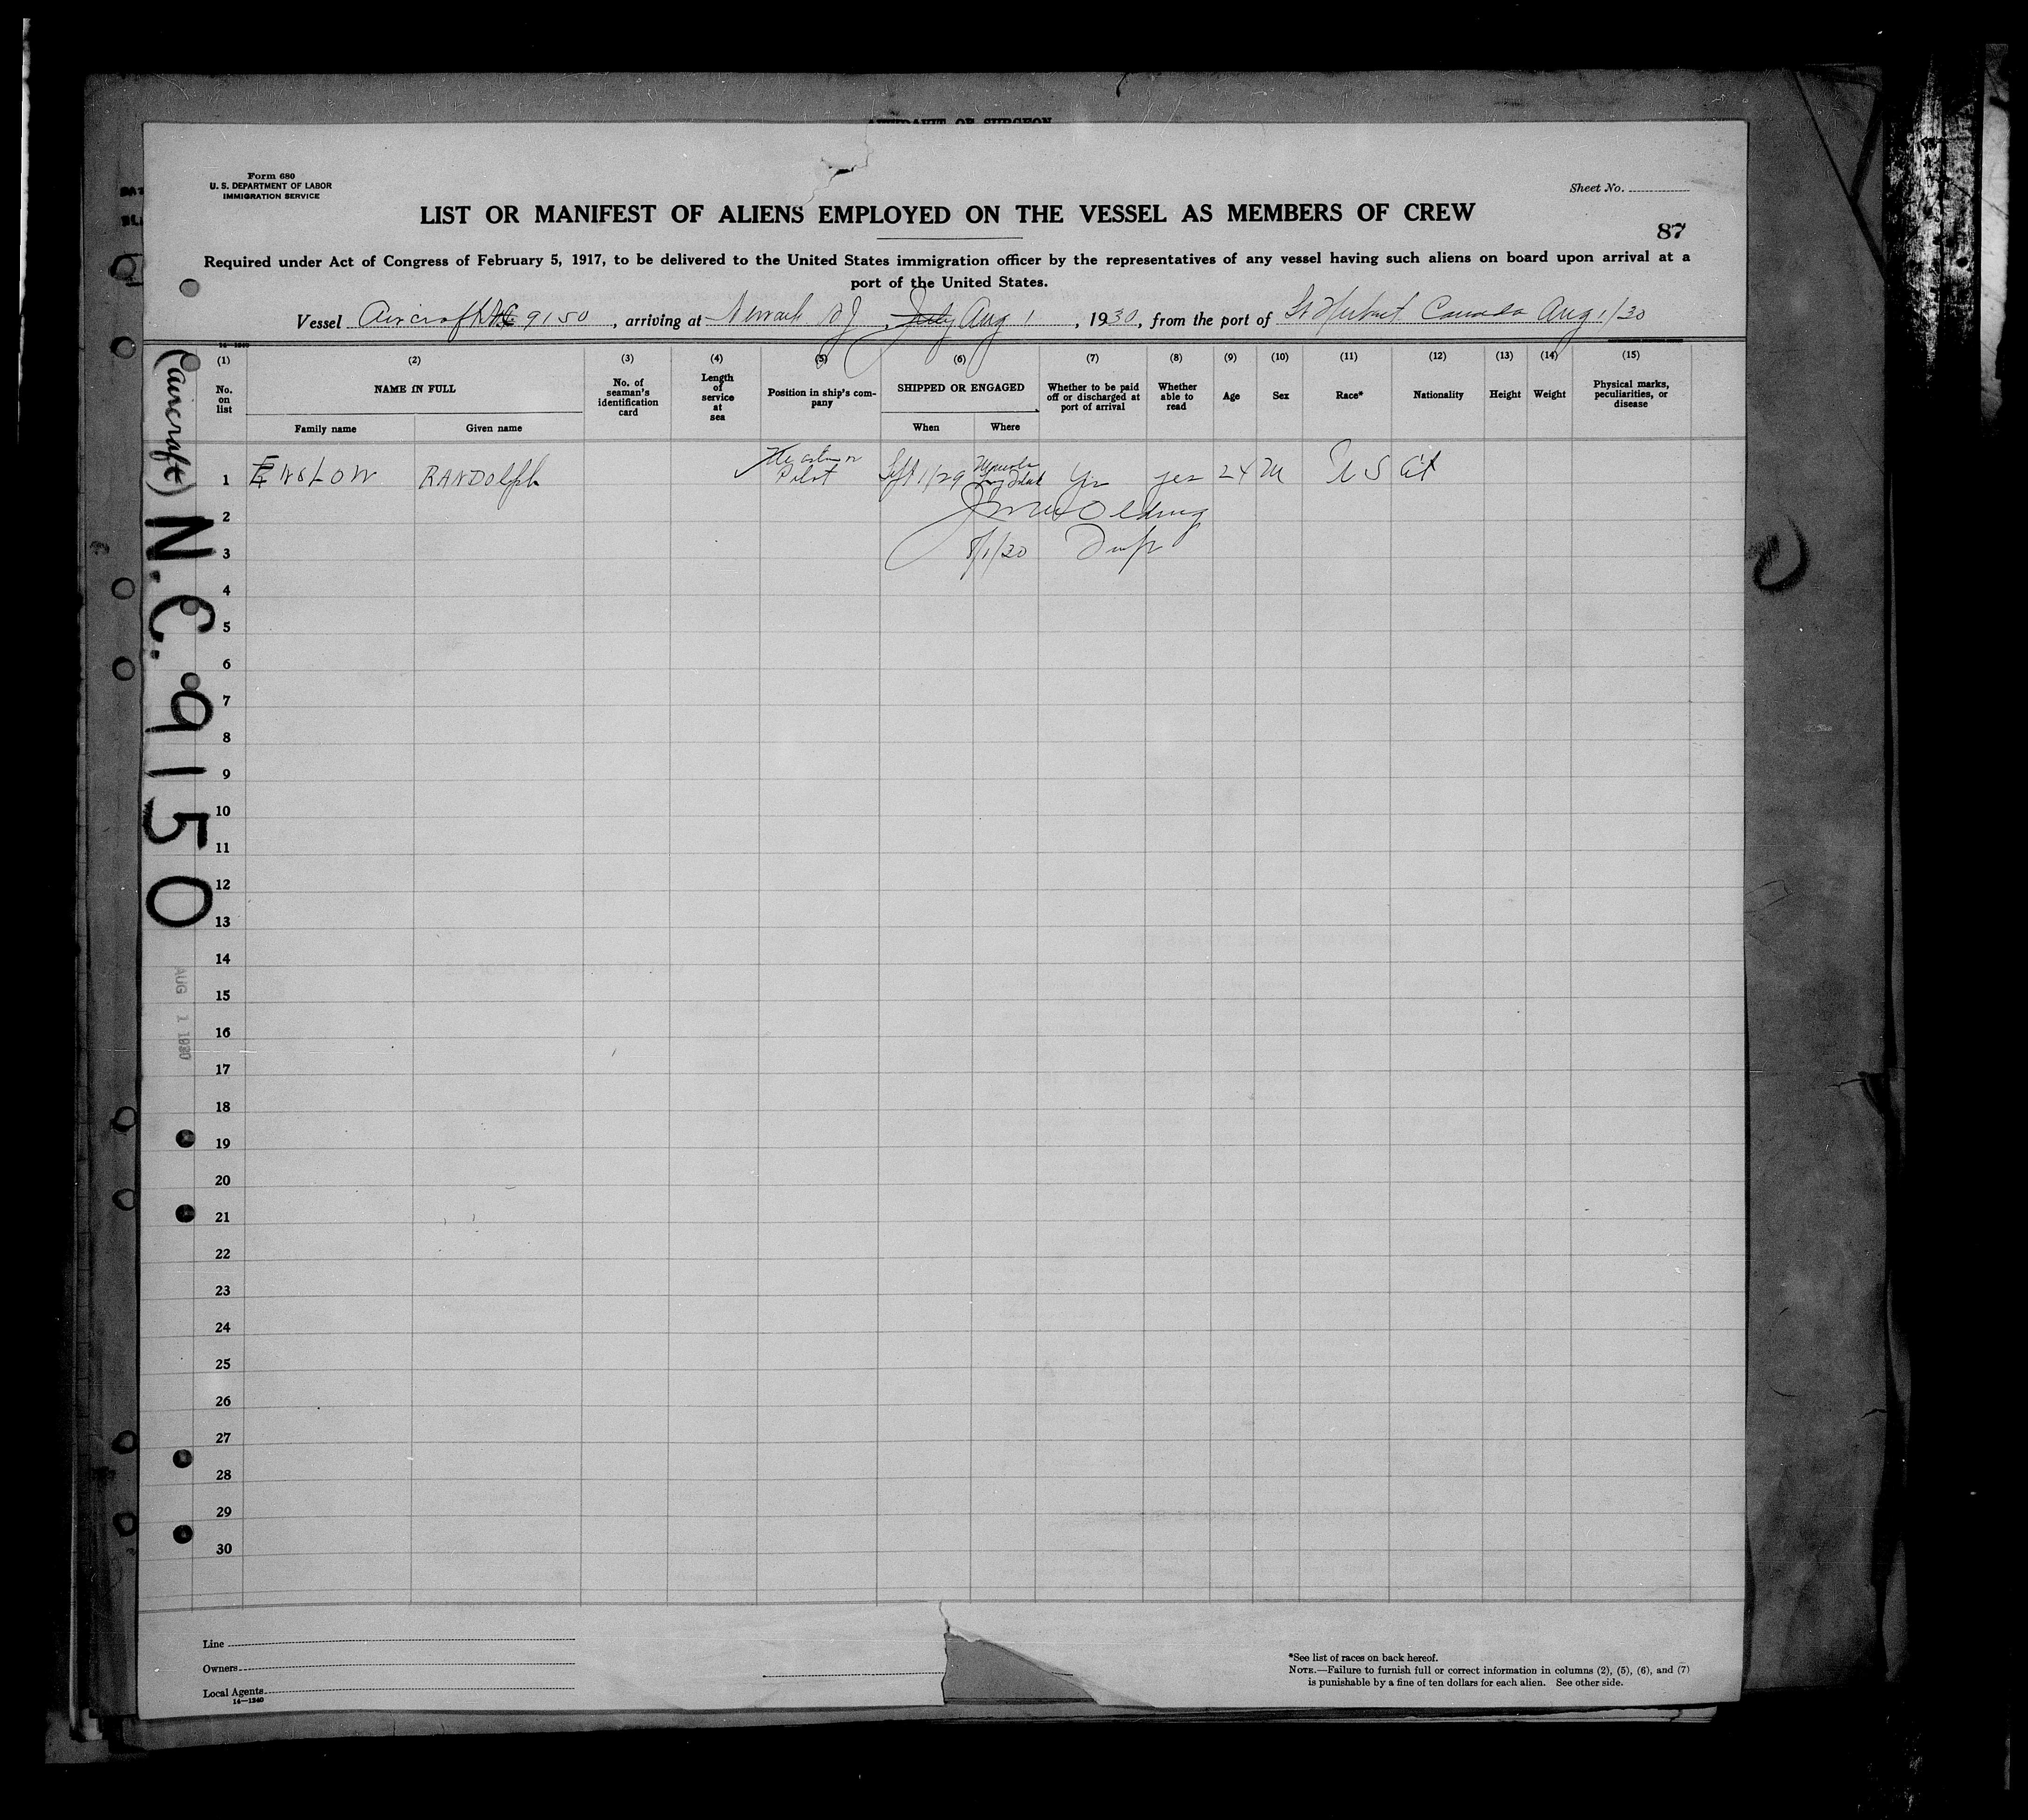 AFFIDAVIT OF SURGEON
Form 680
U. S. DEPARTMENT OF LABOR
IMMIGRATION SERVICE
Sheet No.
LIST OR MANIFEST OF ALIENS EMPLOYED ON THE VESSEL AS MEMBERS OF CREW
87
Required under Act of Congress of February 5, 1917, to be delivered to the United States immigration officer by the representatives of any vessel having such aliens on board upon arrival at a
port of the United States.
Vessel Aircraft NC 9150, arriving at Newark NJ July Aug 1, 1930, from the port of St Hubert Canada Aug 1/30
14—1240
(1) (2) (3) (4) (5) (6) (7) (8) (9) (10) (11) (12) (13) (14) (15)
No. on list
NAME IN FULL
Family name
Given name
No. of seaman's identification card
Length of service at sea
Position in ship's company
SHIPPED OR ENGAGED
When
Where
Whether to be paid off or discharged at port of arrival
Whether able to read
Age
Sex
Race*
Nationality
Height
Weight
Physical marks, peculiarities, or disease
1 ENSLOW RANDOLph Pilot Sept 1/29 Yes yes 24 M U S Cit
2
3 8/1/30 Insp
4
5
6
7
8
9
10
11
12
13
14
15
16
17
18
19
20
21
22
23
24
25
26
27
28
29
30
(aircraft) N.C. 9150
AUG 1 1930
Line
Owners
Local Agents
14—1240
*See list of races on back hereof.
NOTE.—Failure to furnish full or correct information in columns (2), (5), (6), and (7)
is punishable by a fine of ten dollars for each alien. See other side.